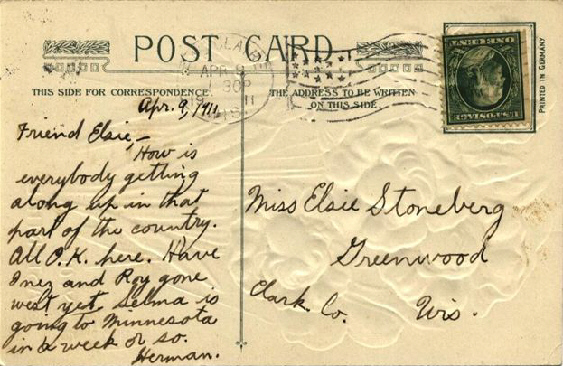 POST CARD
THIS SIDE FOR CORRESPONDENCE
THE ADDRESS TO BE WRITTEN
ON THIS SIDE
PRINTED IN GERMANY
ONE CENT
APR
30P
11
WIS.
Apr. 9, 1911
Friend Elsie,—
How is
everybody getting
along up in that
part of the country.
All O.K. here. Have
Inez and Roy gone
west yet Selma is
going to Minnesota
in a week or so.
Herman.
Miss Elsie Stoneberg
Greenwood
Clark Co. Wis.